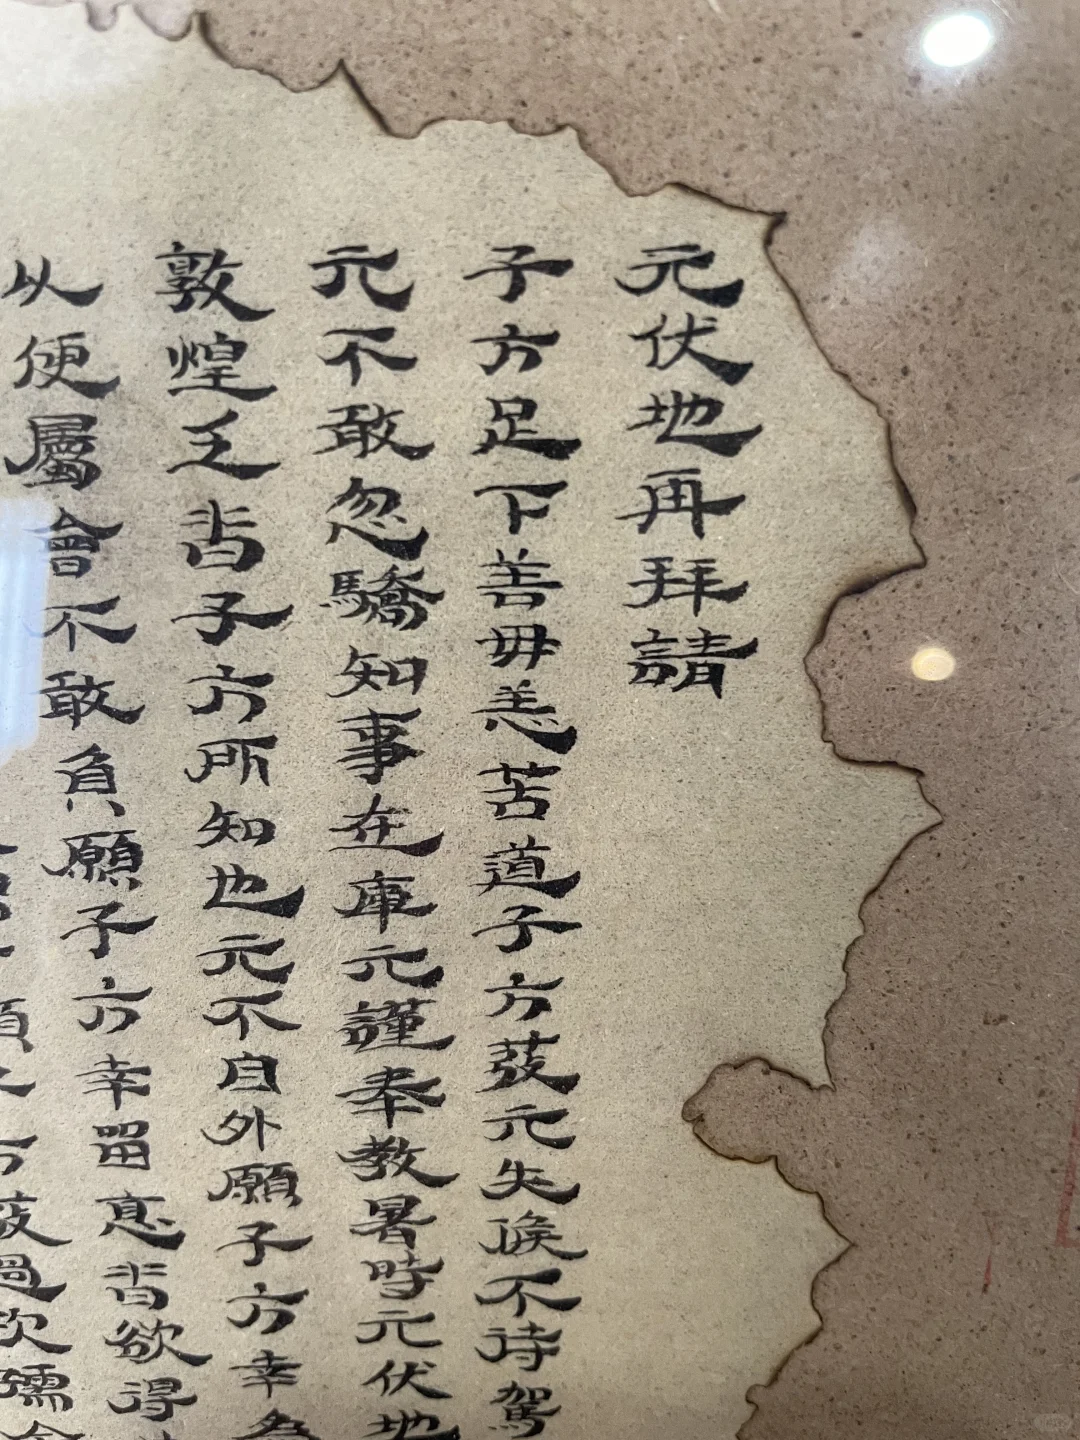 元伏地再拜請
子方足下善毋恙苦道子方茇元失候不待駕
元不敢忽驕知事在庫元謹奉教暑時元伏地
敦煌乏沓子方所知也元不自外願子方幸為
以便屬會不敢負願子方幸留意沓欲得
願子方茇過次孺舍